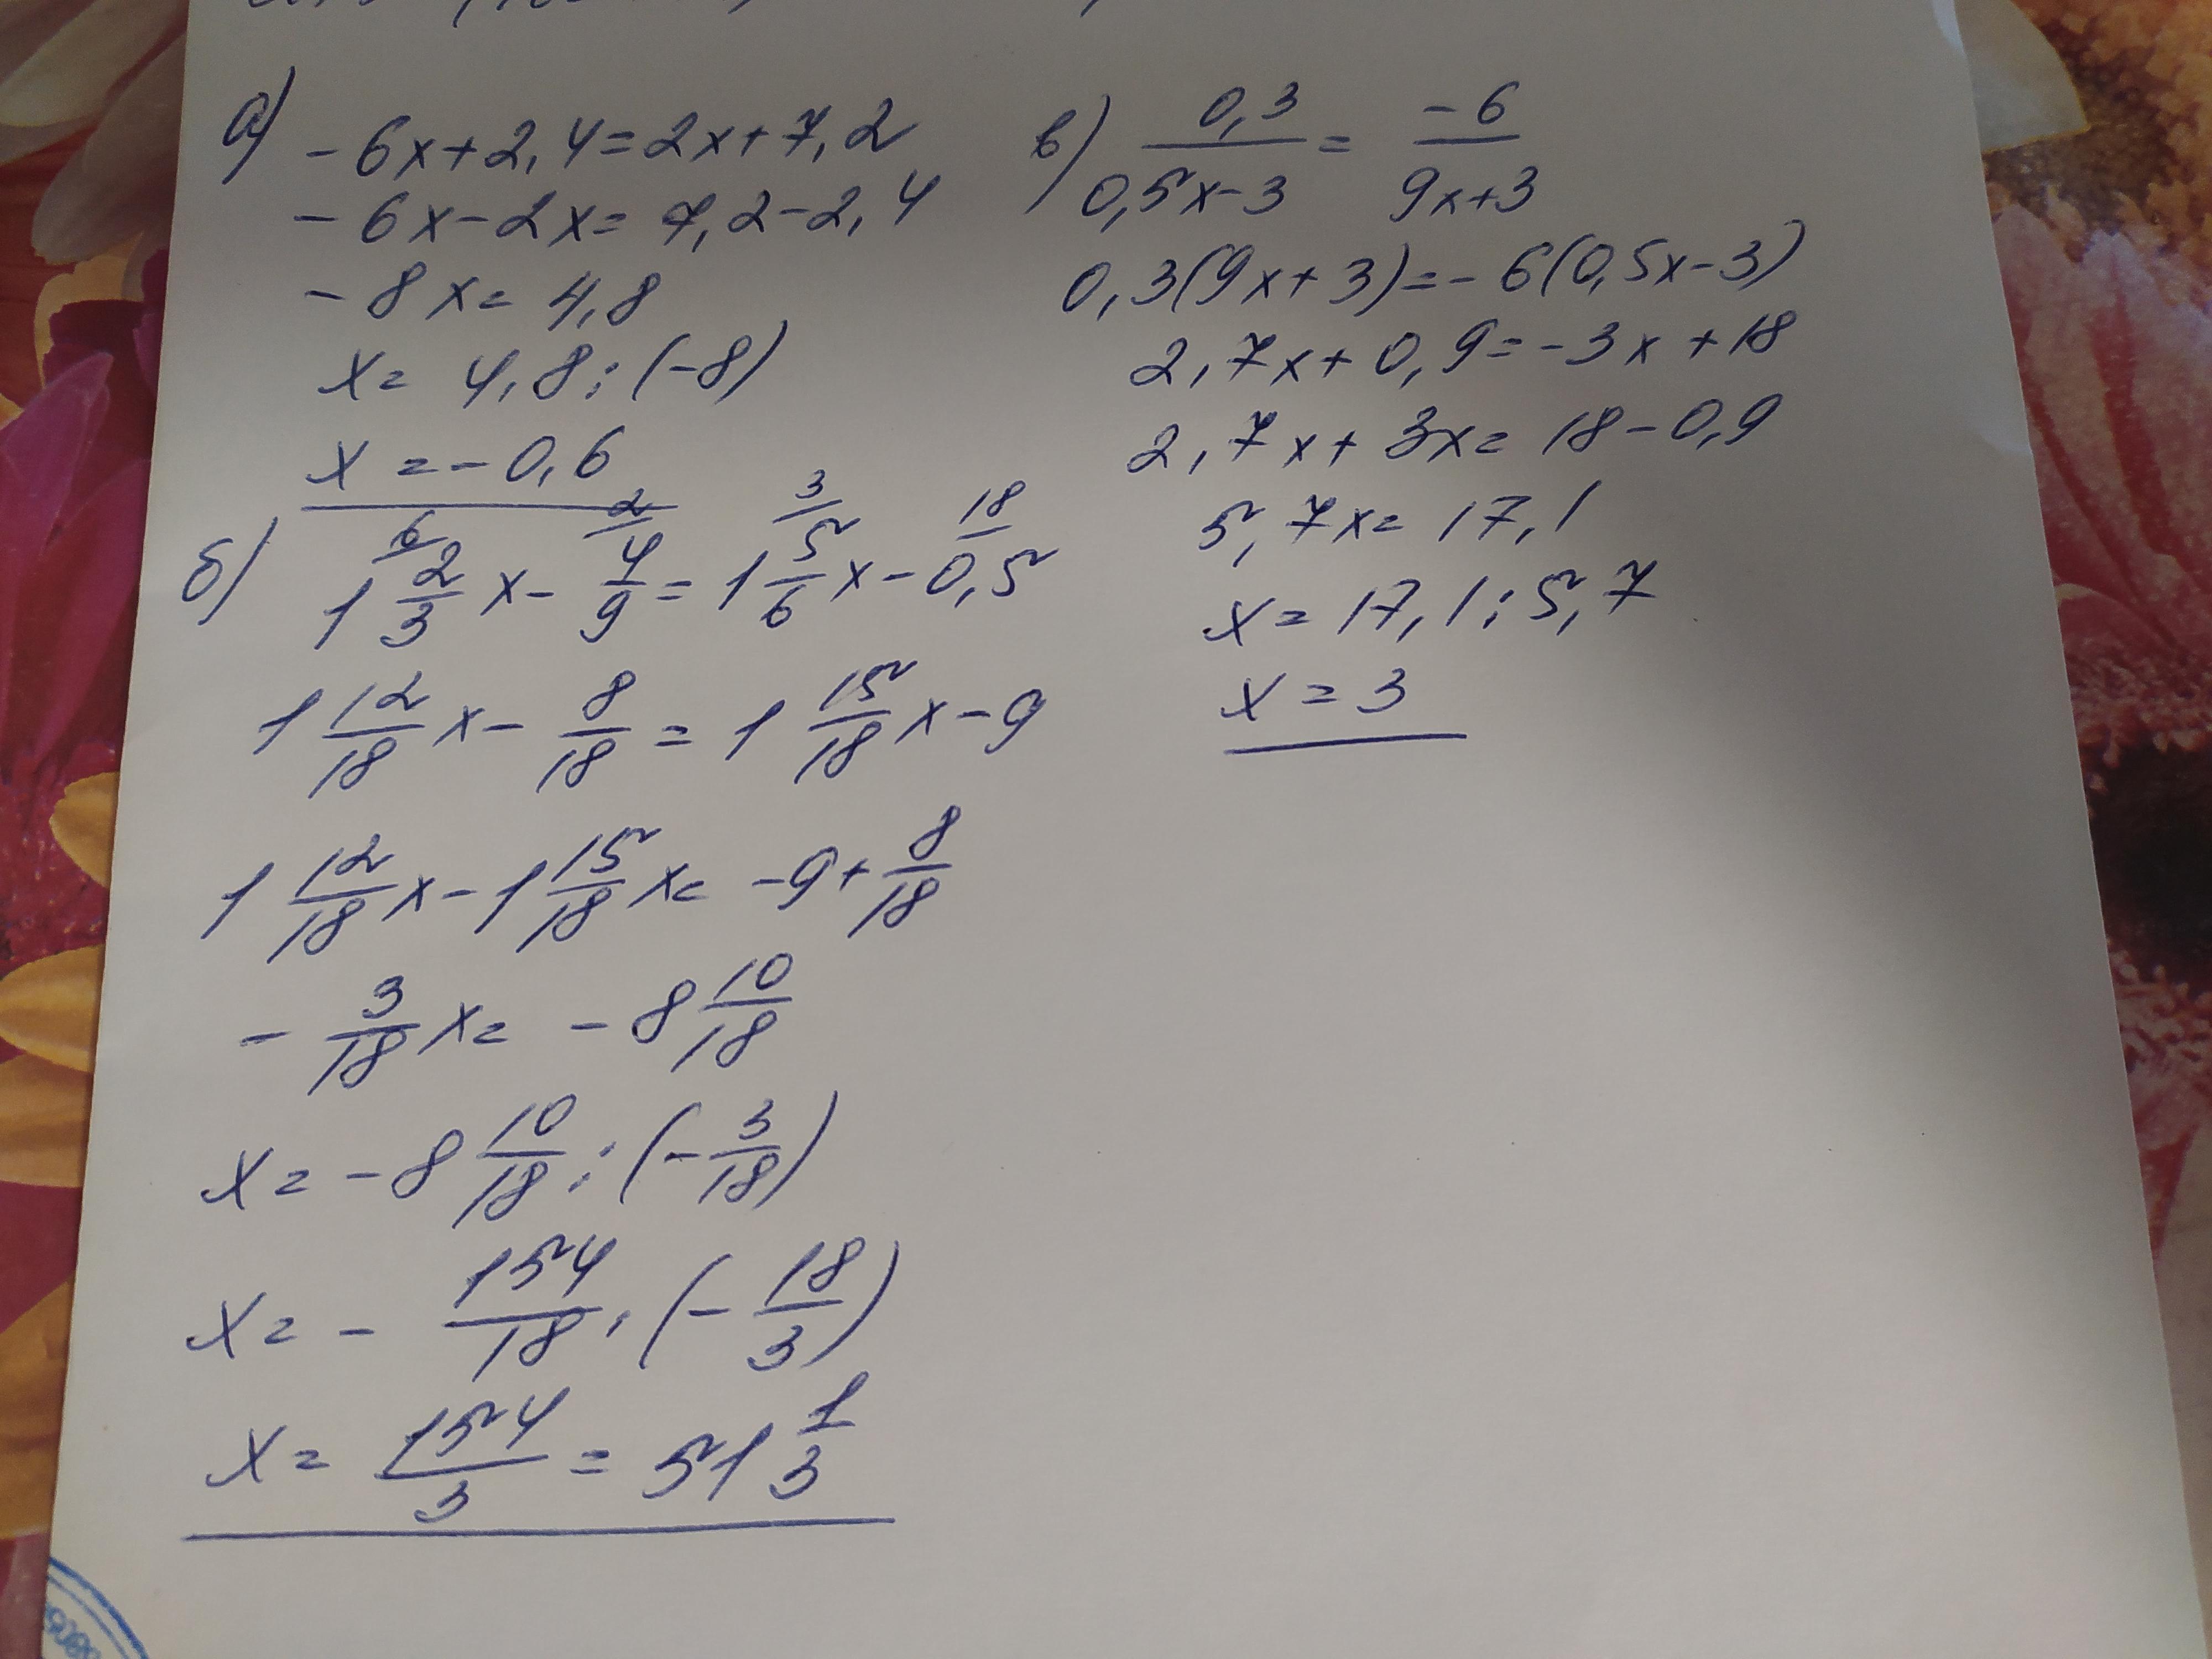 а) -6x+2,4=2x+7,2
-6x-2x=7,2-2,4
-8x=4,8
x=4,8:(-8)
x=-0,6
б) 1 2/3 (6) x - 4/9 (2) = 1 5/6 (3) x - 0,5 (18)
1 12/18 x - 8/18 = 1 15/18 x - 9
1 12/18 x - 1 15/18 x = -9 + 8/18
- 3/18 x = -8 10/18
x = -8 10/18 : (- 3/18)
x = - 154/18 · (- 18/3)
x = 154/3 = 51 1/3
в) 0,3/(0,5x-3) = -6/(9x+3)
0,3(9x+3)=-6(0,5x-3)
2,7x+0,9=-3x+18
2,7x+3x=18-0,9
5,7x=17,1
x=17,1:5,7
x=3